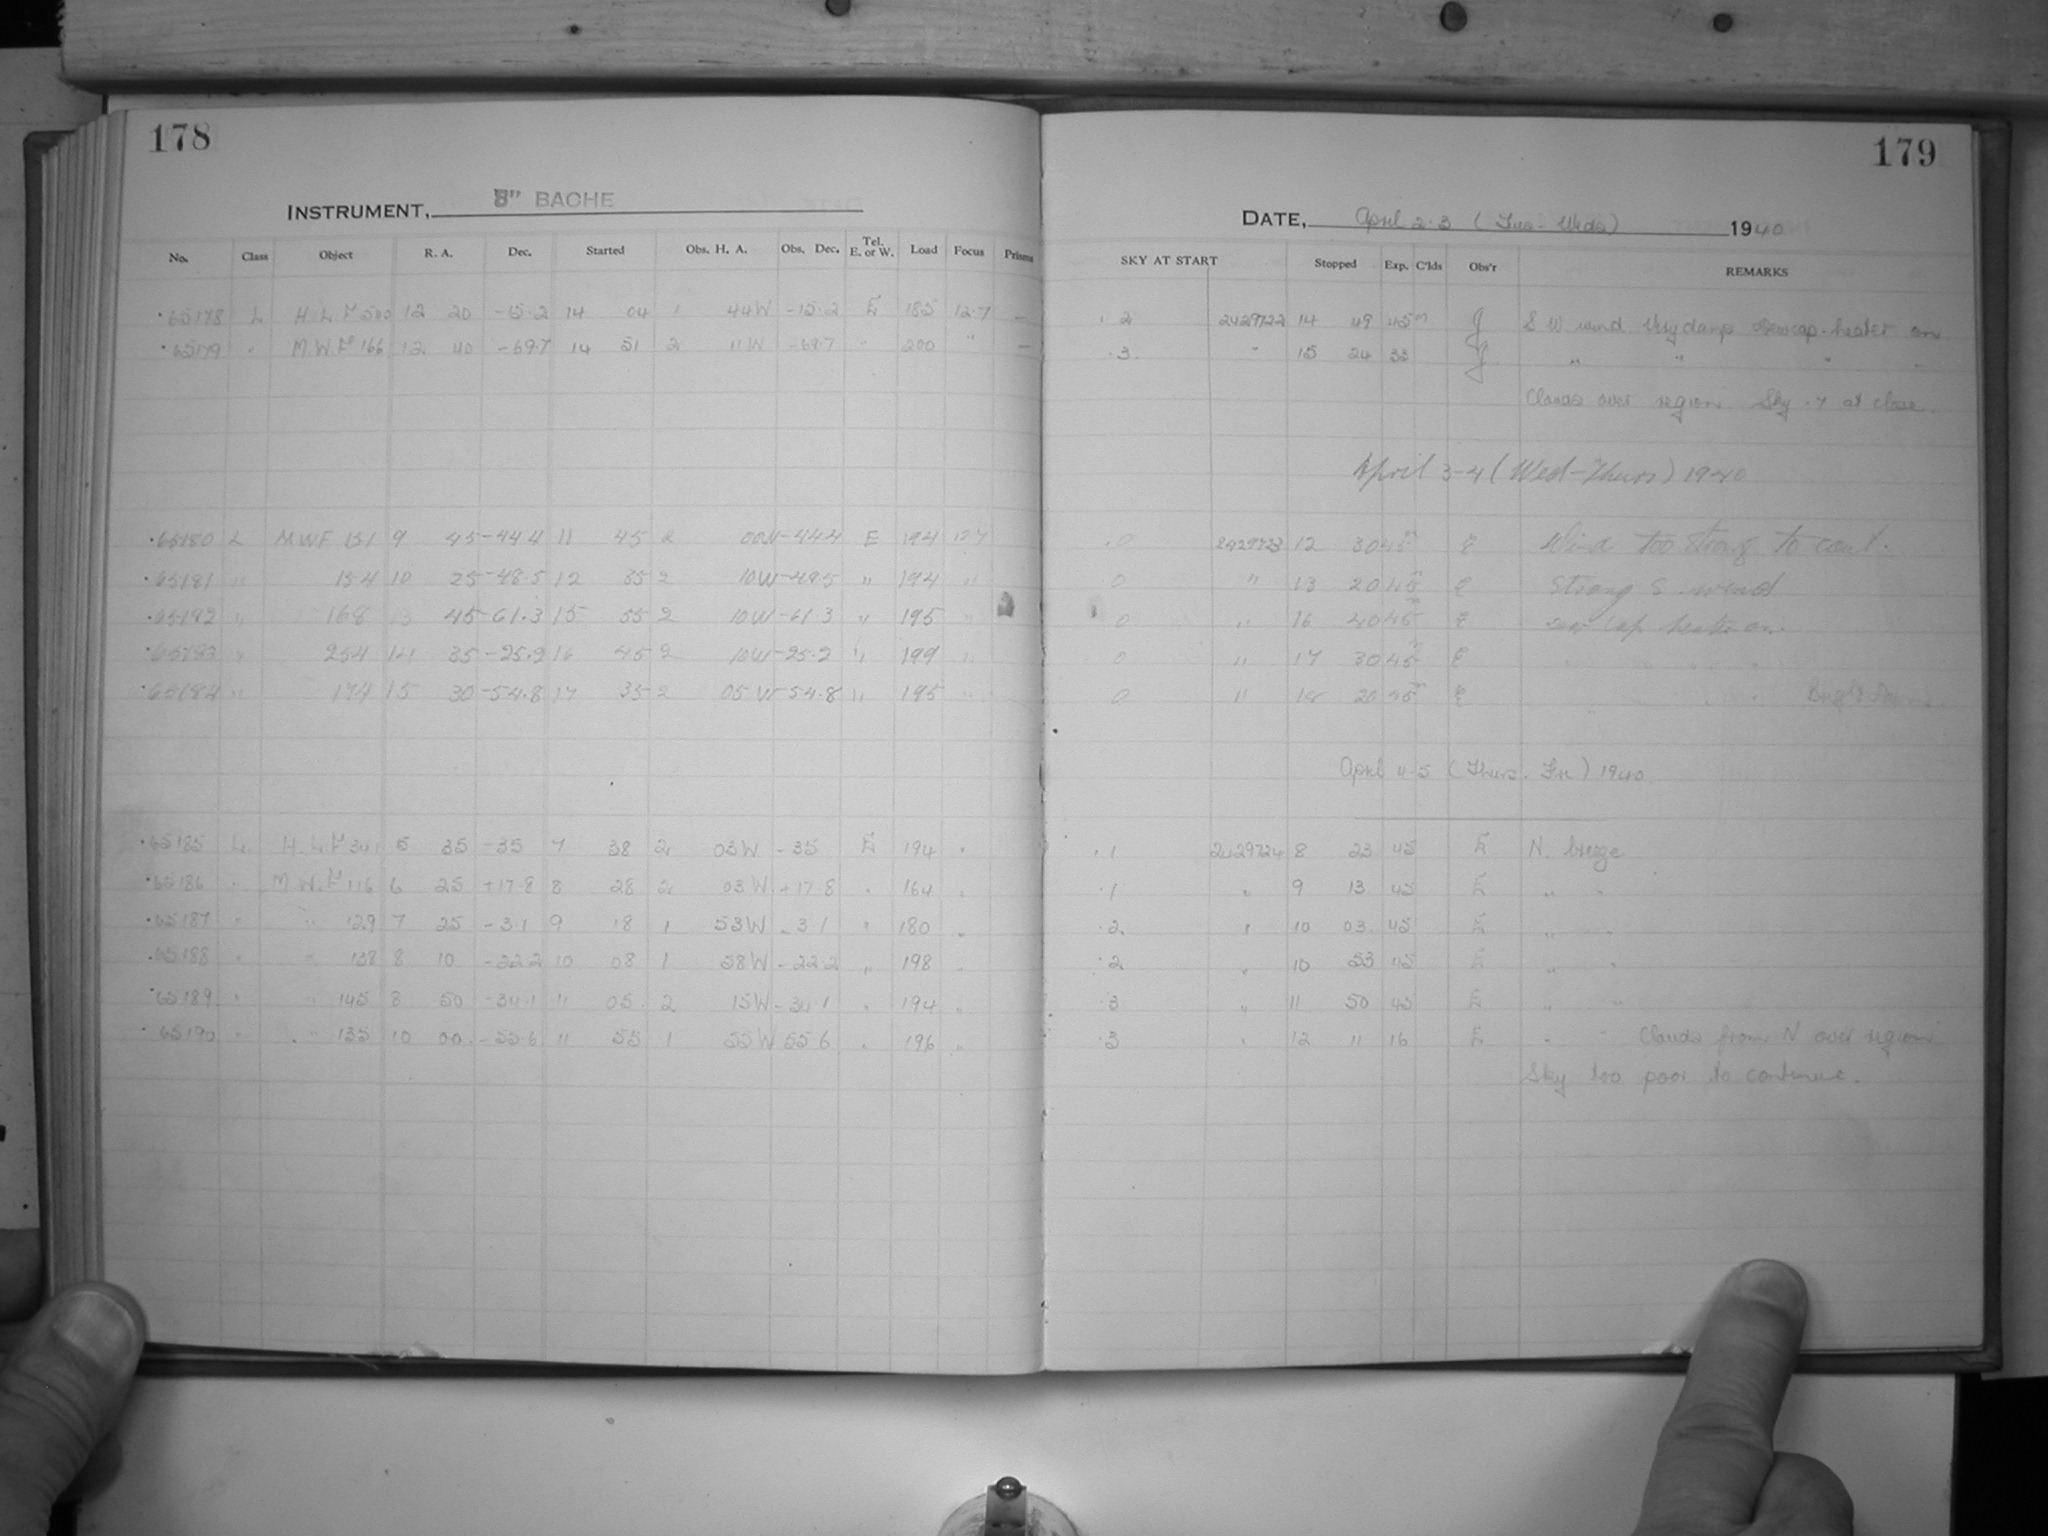 178
INSTRUMENT, 8" BACHE
No. Class Object R. A. Dec. Started Obs. H. A. Obs. Dec. Tel. E. or W. Load Focus Prisms
65178 L H.L.F 500 12 20 -15.2 14 04 1 44W -15.2 E 185 12.7 —
65179 " M.W.F 166 12 40 -69.7 14 51 2 11W -69.7 " 200 " —
65180 L MWF 151 9 45 -44.4 11 45 2 00W -44.4 E 194 12.7
65181 " 154 10 25 -48.5 12 35 2 10W -48.5 " 194 "
65182 " 168 13 45 -61.3 15 55 2 10W -61.3 " 195 "
65183 " 254 14 35 -25.2 16 45 2 10W -25.2 " 199 "
65184 " 174 15 30 -54.8 17 35 2 05W -54.8 " 195 "
65185 L H.L.F 341 5 35 -35 7 38 2 03W -35 E 194 "
65186 " M.W.F 116 6 25 +17.8 8 28 2 03W +17.8 " 164 "
65187 " " 129 7 25 -3.1 9 18 1 53W -3.1 " 180 "
65188 " " 138 8 10 -22.2 10 08 1 58W -22.2 " 198 "
65189 " " 145 8 50 -34.1 11 05 2 15W -34.1 " 194 "
65190 " " 155 10 00 -55.6 11 55 1 55W 55.6 " 196 "
179
DATE, April 2-3 (Tues-Weds) 1940
SKY AT START Stopped Exp. C'lds Obs'r REMARKS
.2 2429722 14 49 45m J S W wind Very damp Dewcap-heater on
.3 " 15 24 33 J " " "
Clouds over region. Sky .7 at close.
April 3-4 (Wed-Thurs) 1940
.0 2429723 12 30 45m E Wind too strong to cont.
0 " 13 20 45m E Strong S. wind
0 " 16 40 45m E dew cap heater on
0 " 17 30 45m E " " " "
0 " 18 20 45m E " " " "
April 4-5 (Thurs. Fri) 1940.
.1 2429724 8 23 45 E N. breeze
.1 " 9 13 45 E " "
.2 " 10 03 45 E " "
.2 " 10 53 45 E " "
.3 " 11 50 45 E " "
.3 " 12 11 16 E " " Clouds from N over region
Sky too poor to continue.